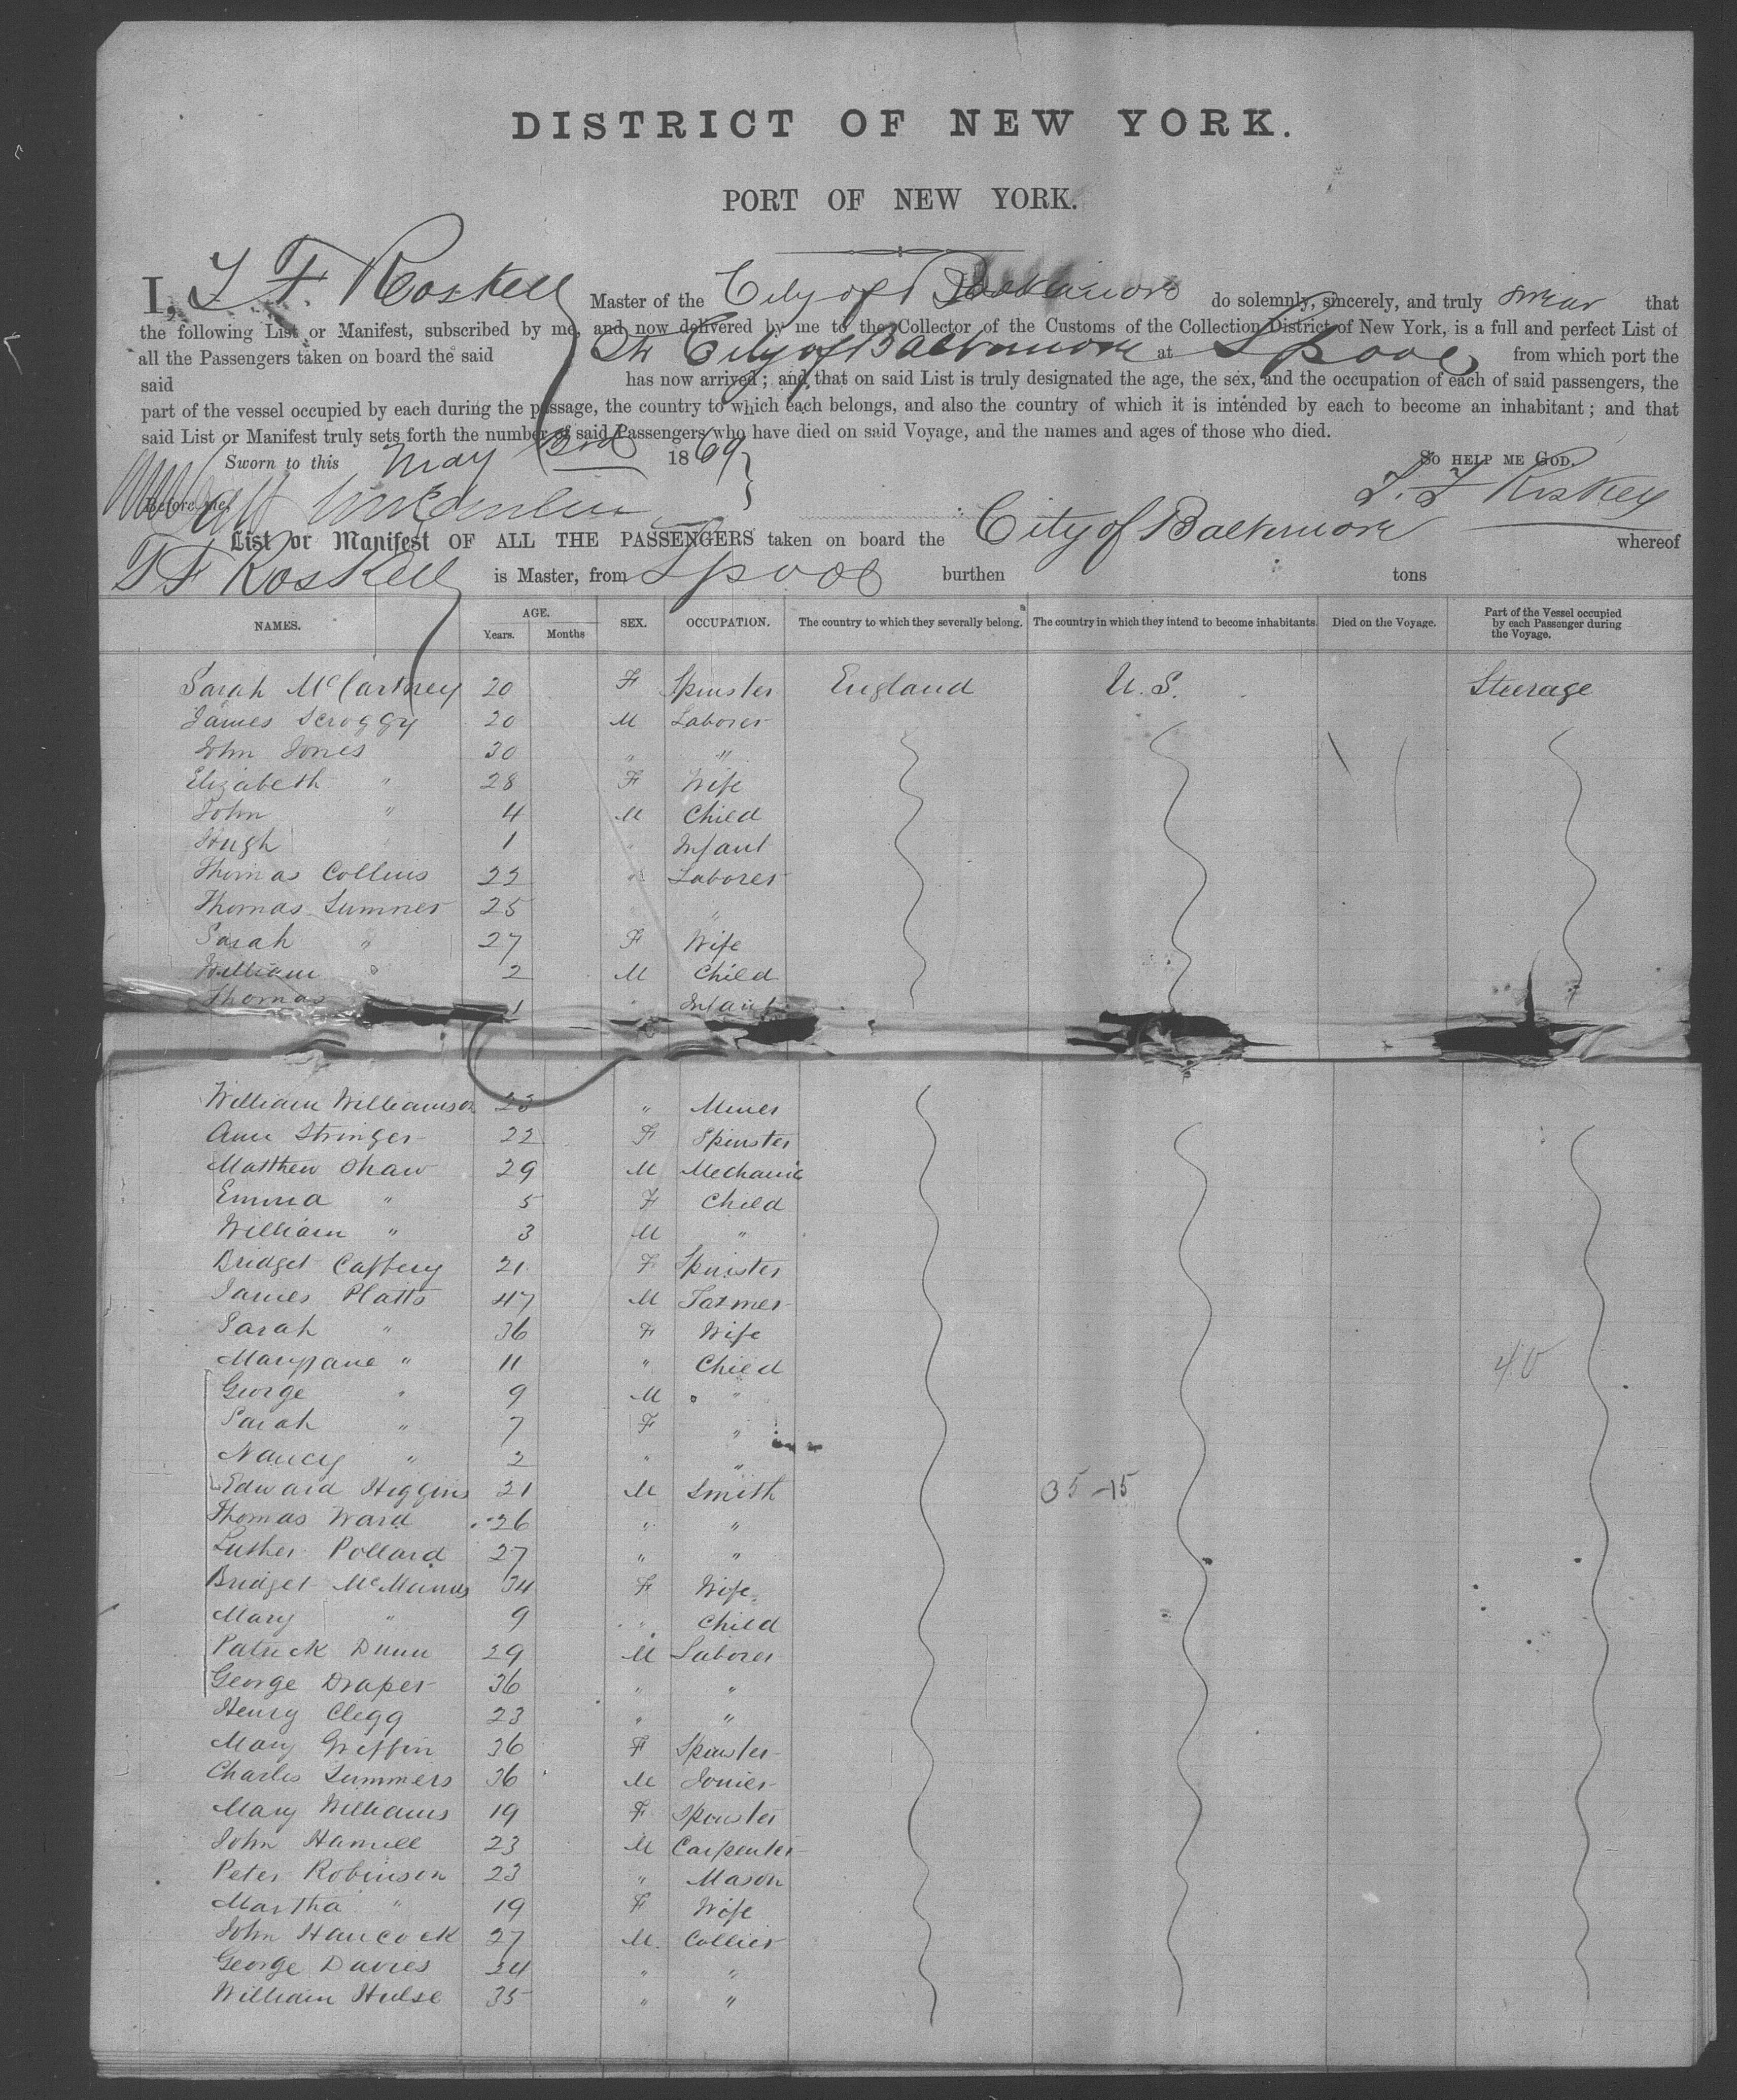 DISTRICT OF NEW YORK.
PORT OF NEW YORK.
I, T F. Roskell Master of the City of Baltimore do solemnly, sincerely, and truly swear that
the following List or Manifest, subscribed by me, and now delivered by me to the Collector of the Customs of the Collection District of New York, is a full and perfect List of
all the Passengers taken on board the said Str City of Baltimore at Lpool from which port the
said has now arrived; and that on said List is truly designated the age, the sex, and the occupation of each of said passengers, the
part of the vessel occupied by each during the passage, the country to which each belongs, and also the country of which it is intended by each to become an inhabitant; and that
said List or Manifest truly sets forth the number of said Passengers who have died on said Voyage, and the names and ages of those who died.
Sworn to this May 3rd 1869 So HELP ME GOD.
Before me,
List or Manifest OF ALL THE PASSENGERS taken on board the City of Baltimore whereof
T F Roskell is Master, from Lpool burthen tons
NAMES. AGE. Years. Months SEX. OCCUPATION. The country to which they severally belong. The country in which they intend to become inhabitants. Died on the Voyage. Part of the Vessel occupied by each Passenger during the Voyage.
Sarah McCartney 20 F Spinster England U. S. Steerage
James Scroggy 20 M Laborer
John Jones 30 " "
Elizabeth " 28 F Wife
John " 4 M Child
Hugh 1 " Infant
Thomas Collins 22 " Laborer
Thomas Sumner 25 " "
Sarah " 27 F Wife
William " 2 M Child
Thomas 1 " Infant
William Williamson 23 " Miner
Ann Stringer 22 F Spinster
Matthew Shaw 29 M Mechanic
Emma " 5 F Child
William " 3 M "
Bridget Caffery 21 F Spinster
James Platts 47 M Farmer
Sarah " 36 F Wife
Maryjane " 11 " Child
George " 9 M "
Sarah " 7 F "
Nancy " 2 " "
Edward Higgins 21 M Smith 35-15
Thomas Ward 26 " "
Luther Pollard 27 " "
Bridget McManus 34 F Wife
Mary " 9 " Child
Patrick Dunn 29 M Laborer
George Draper 36 " "
Henry Clegg 23 " "
Mary Griffin 36 F Spinster
Charles Summers 36 M Joiner
Mary Williams 19 F Spinster
John Hamill 23 M Carpenter
Peter Robinson 23 " Mason
Martha " 19 F Wife
John Hancock 27 M. Collier
George Davies 24 " "
William Hulse 35 " "